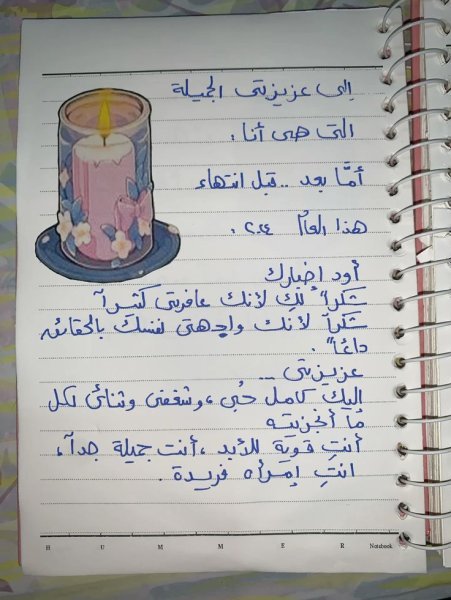 إلى عزيزتي الجميلة
التي هي أنا.
أمّا بعد .. قبل انتهاء
هذا العام ٢٠٢٤.
أود اخبارك
شكراً لكِ لأنك عافرتي كثيراً
شكراً لأنك واجهتي نفسك بالحقائق
دائماً".
عزيزتي ...
إليك كامل حُبي، وشغفي وثنائي لكل
ما أنجزيته
أنتِ قوية للأبد، أنت جميلة جداً،
انتِ إمرأه فريدة.
H U M M E R Notebook